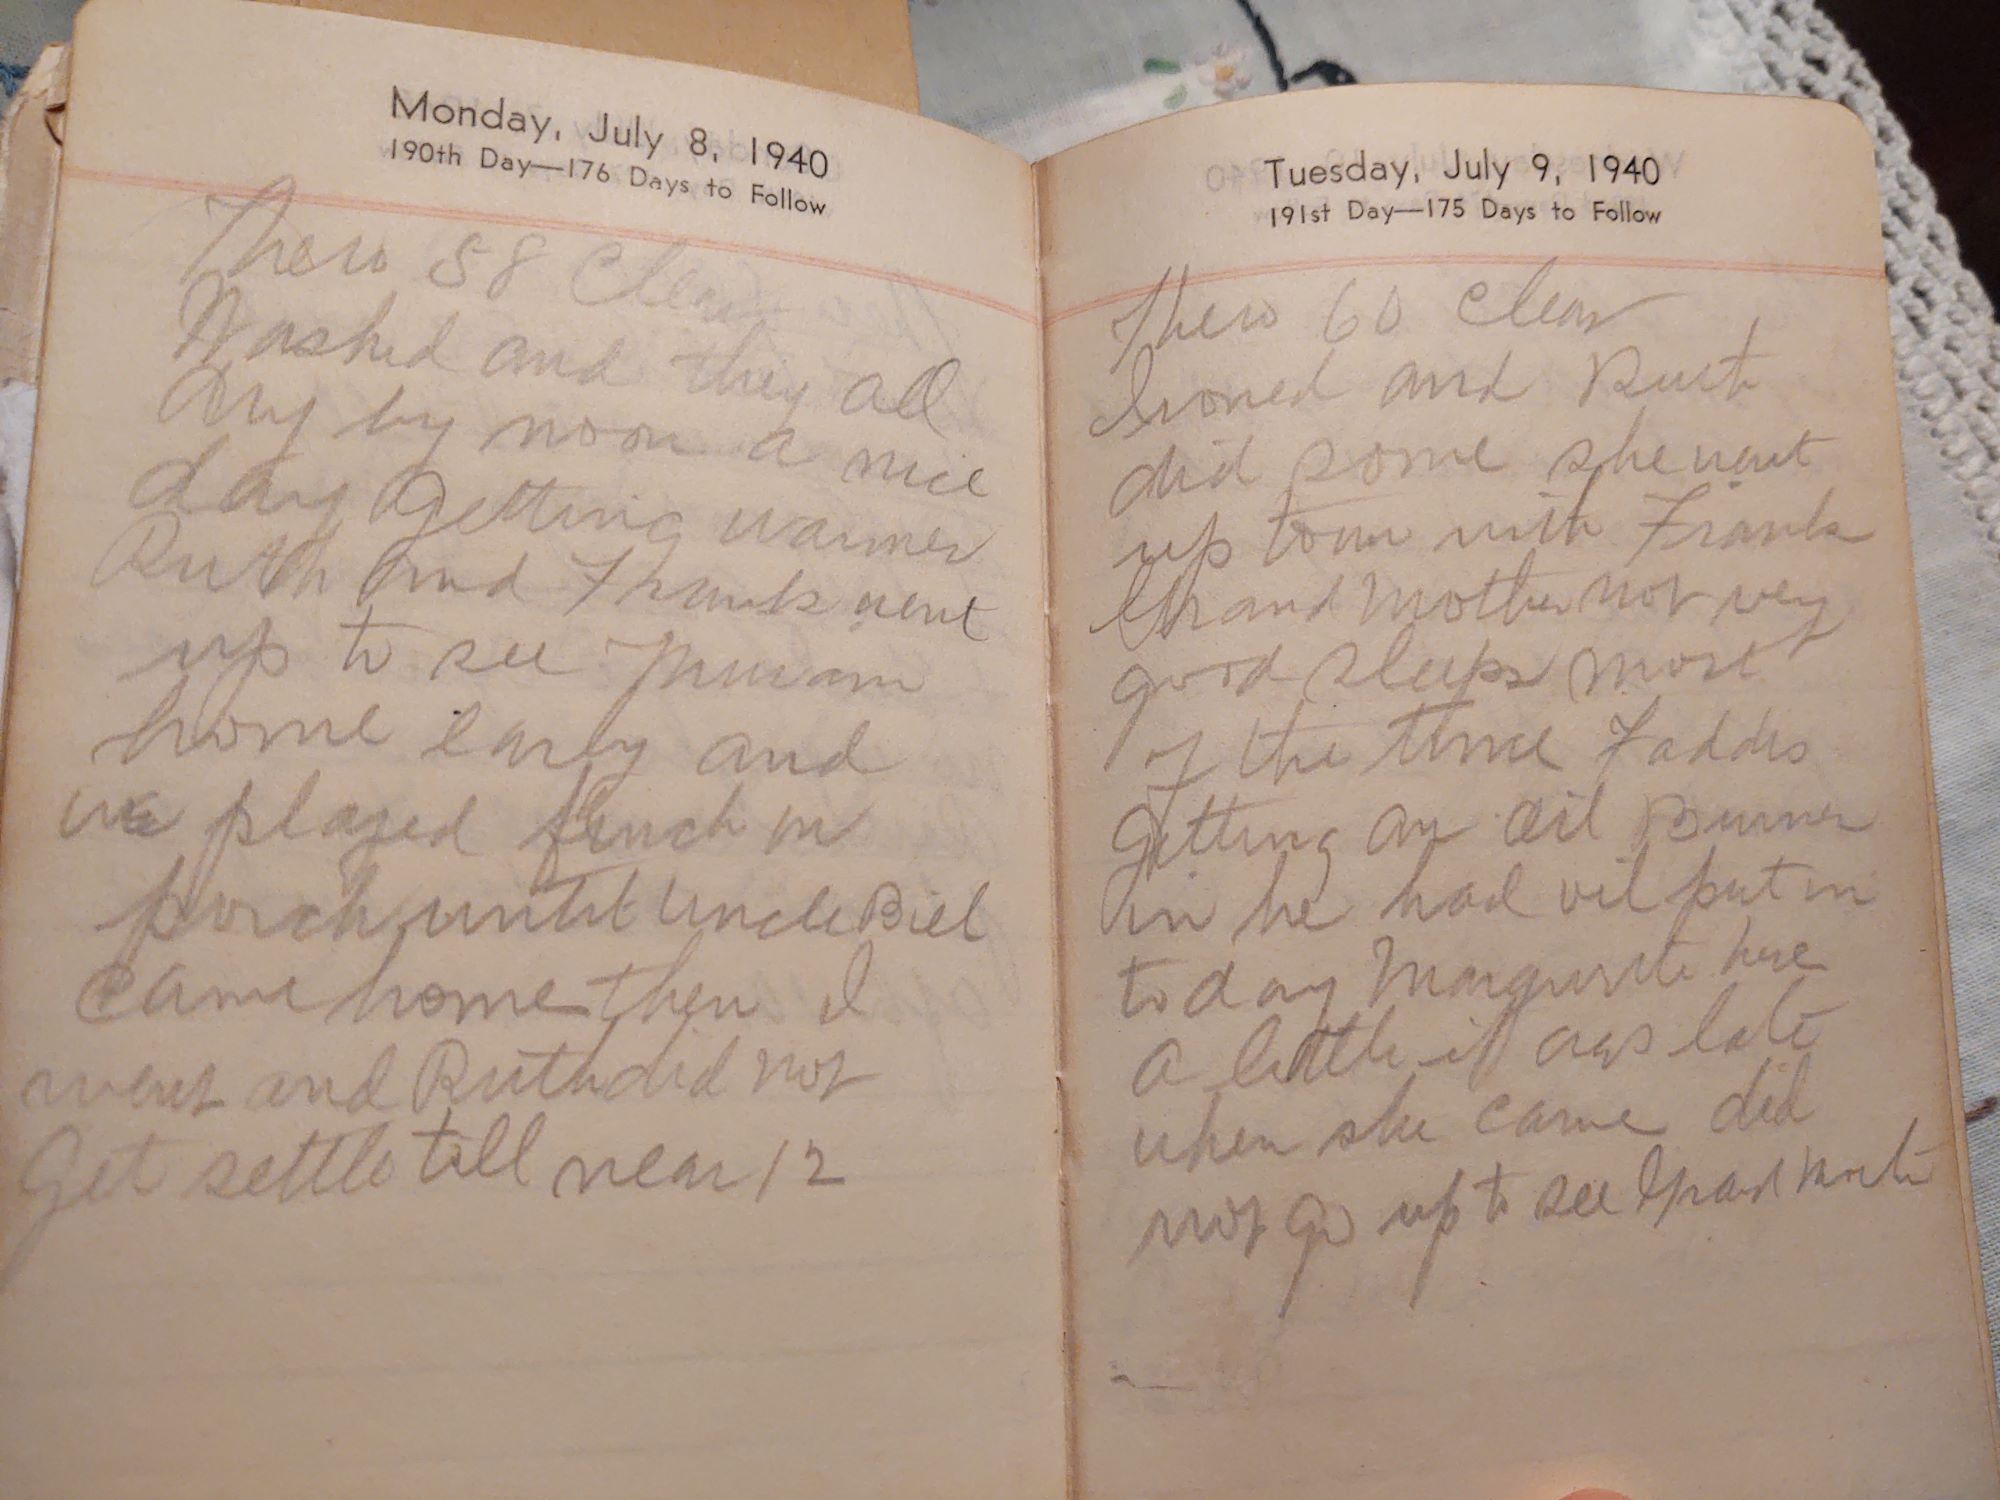 Monday, July 8, 1940
190th Day—176 Days to Follow
Ther 58 Clear
Washed and they all
dry by noon a nice
day getting warmer
Ruth and Frank went
up to see
home early and
we played flinch on
porch until Uncle Bill
came home then I
went and Ruth did not
Get settle till near 12
Tuesday, July 9, 1940
191st Day—175 Days to Follow
Ther 60 Clear
Ironed and Ruth
did some she went
up town with Frank
Grand Mother not very
good sleeps most
of the time Faddis
getting an oil Burner
in he had oil put in
to day Marguerite here
a little it was late
when she came did
not go up to see Grand Mother